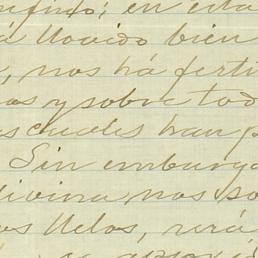 en esta
á llovido bien
, nos há ferti
os y sobre tod
as cuales han p
Sin embarg
divina nos so
os Velos, será